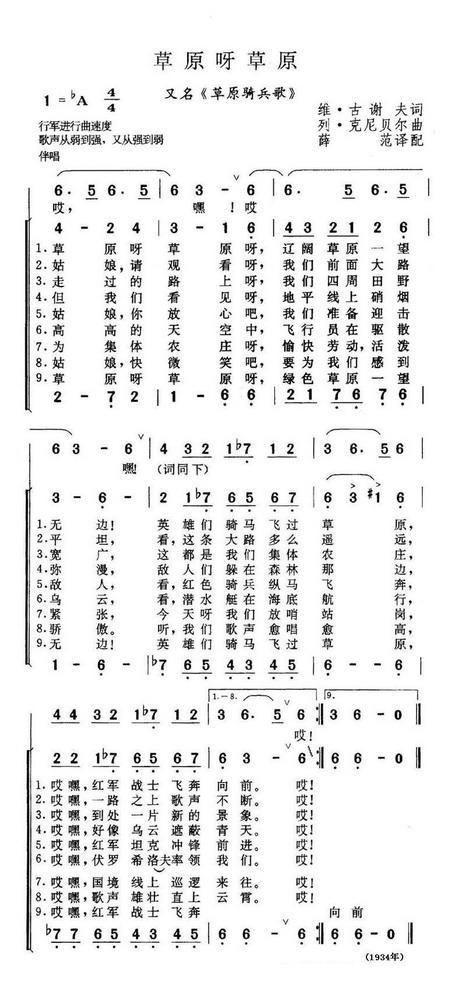 草原呀草原
又名《草原骑兵歌》
1=♭A 4/4
维·古谢夫词
列·克尼贝尔曲
薛 范译配
行军进行曲速度
歌声从弱到强，又从强到弱
伴唱
6. 5 6. 5 | 6 3 - 6 | 6. 5 6. 5 |
哎， 嘿！哎
4 - 2 4 | 3 - 1 6 | 4 3 2 1 2 6 |
1.草 原呀 草 原呀，辽阔 草原 一 望
2.姑 娘，请 观 看呀，我们 前面 大 路
3.走 过的 路 上呀，我们 四周 田 野
4.但 我们 看 见呀，地平 线上 硝 烟
5.姑 娘，你 放 心吧，我们 准备 迎 击
6.高 高的 天 空中，飞行 员在 驱 散
7.为 集体 农 庄呀，愉快 劳动，活 泼
8.姑 娘，快 微 笑吧，要为 我们 感 到
9.草 原呀 草 原呀，绿色 草原 一 望
2 - 7 2 | 1 - 6 6 | 2 1 7 6 7 6 |
6 3 - 6 | 4 3 2 1 ♭7 1 2 | 3 6. 5 6 |
嘿！ （词同下）
3 - 6 - | 2 1 ♭7 6 5 6 7 | 6 3 ♯1 6 |
1.无 边！ 英雄 们骑 马飞 过 草 原，
2.平 坦， 看，这条 大路 多么 遥 远，
3.宽 广， 这都 是我 们集 体 农 庄，
4.弥 漫， 敌人 们躲 在森 林 那 边，
5.敌 人， 看，红色 骑兵 纵马 飞 奔，
6.乌 云， 看，潜水 艇在 海底 航 行，
7.紧 张， 今天 呀我 们放 哨 站 岗，
8.骄 傲。 听，我们 歌声 愈唱 愈 高，
9.无 边！ 英雄 们骑 马飞 过 草 原，
1 - 6 - | ♭7 6 5 4 3 4 5 | 6 - 6 6 |
4 4 3 2 1 ♭7 1 2 | 3 6. 5 6 :‖ 3 6 6 - 0 ‖
1.-8. 9.
哎！
2 2 1 ♭7 6 5 6 7 | 6 3 - 6 :‖ 6 6 6 - 0 ‖
1.哎嘿，红军 战士 飞奔 向 前。 哎！
2.哎嘿，一路 之上 歌声 不 断。 哎！
3.哎嘿，到处 一片 新的 景 象。 哎！
4.哎嘿，好像 乌云 遮蔽 青 天。 哎！
5.哎嘿，红军 坦克 冲锋 前 进。 哎！
6.哎嘿，伏罗 希洛夫率领 我 们。 哎！
7.哎嘿，国境 线上 巡逻 来 往。 哎！
8.哎嘿，歌声 雄壮 直上 云 霄。 哎！
9.哎嘿，红军 战士 飞奔 向 前
♭7 7 6 5 4 3 4 5 | 6 6 - 6 :‖ 6 6 6 - 0 ‖
(1934年)